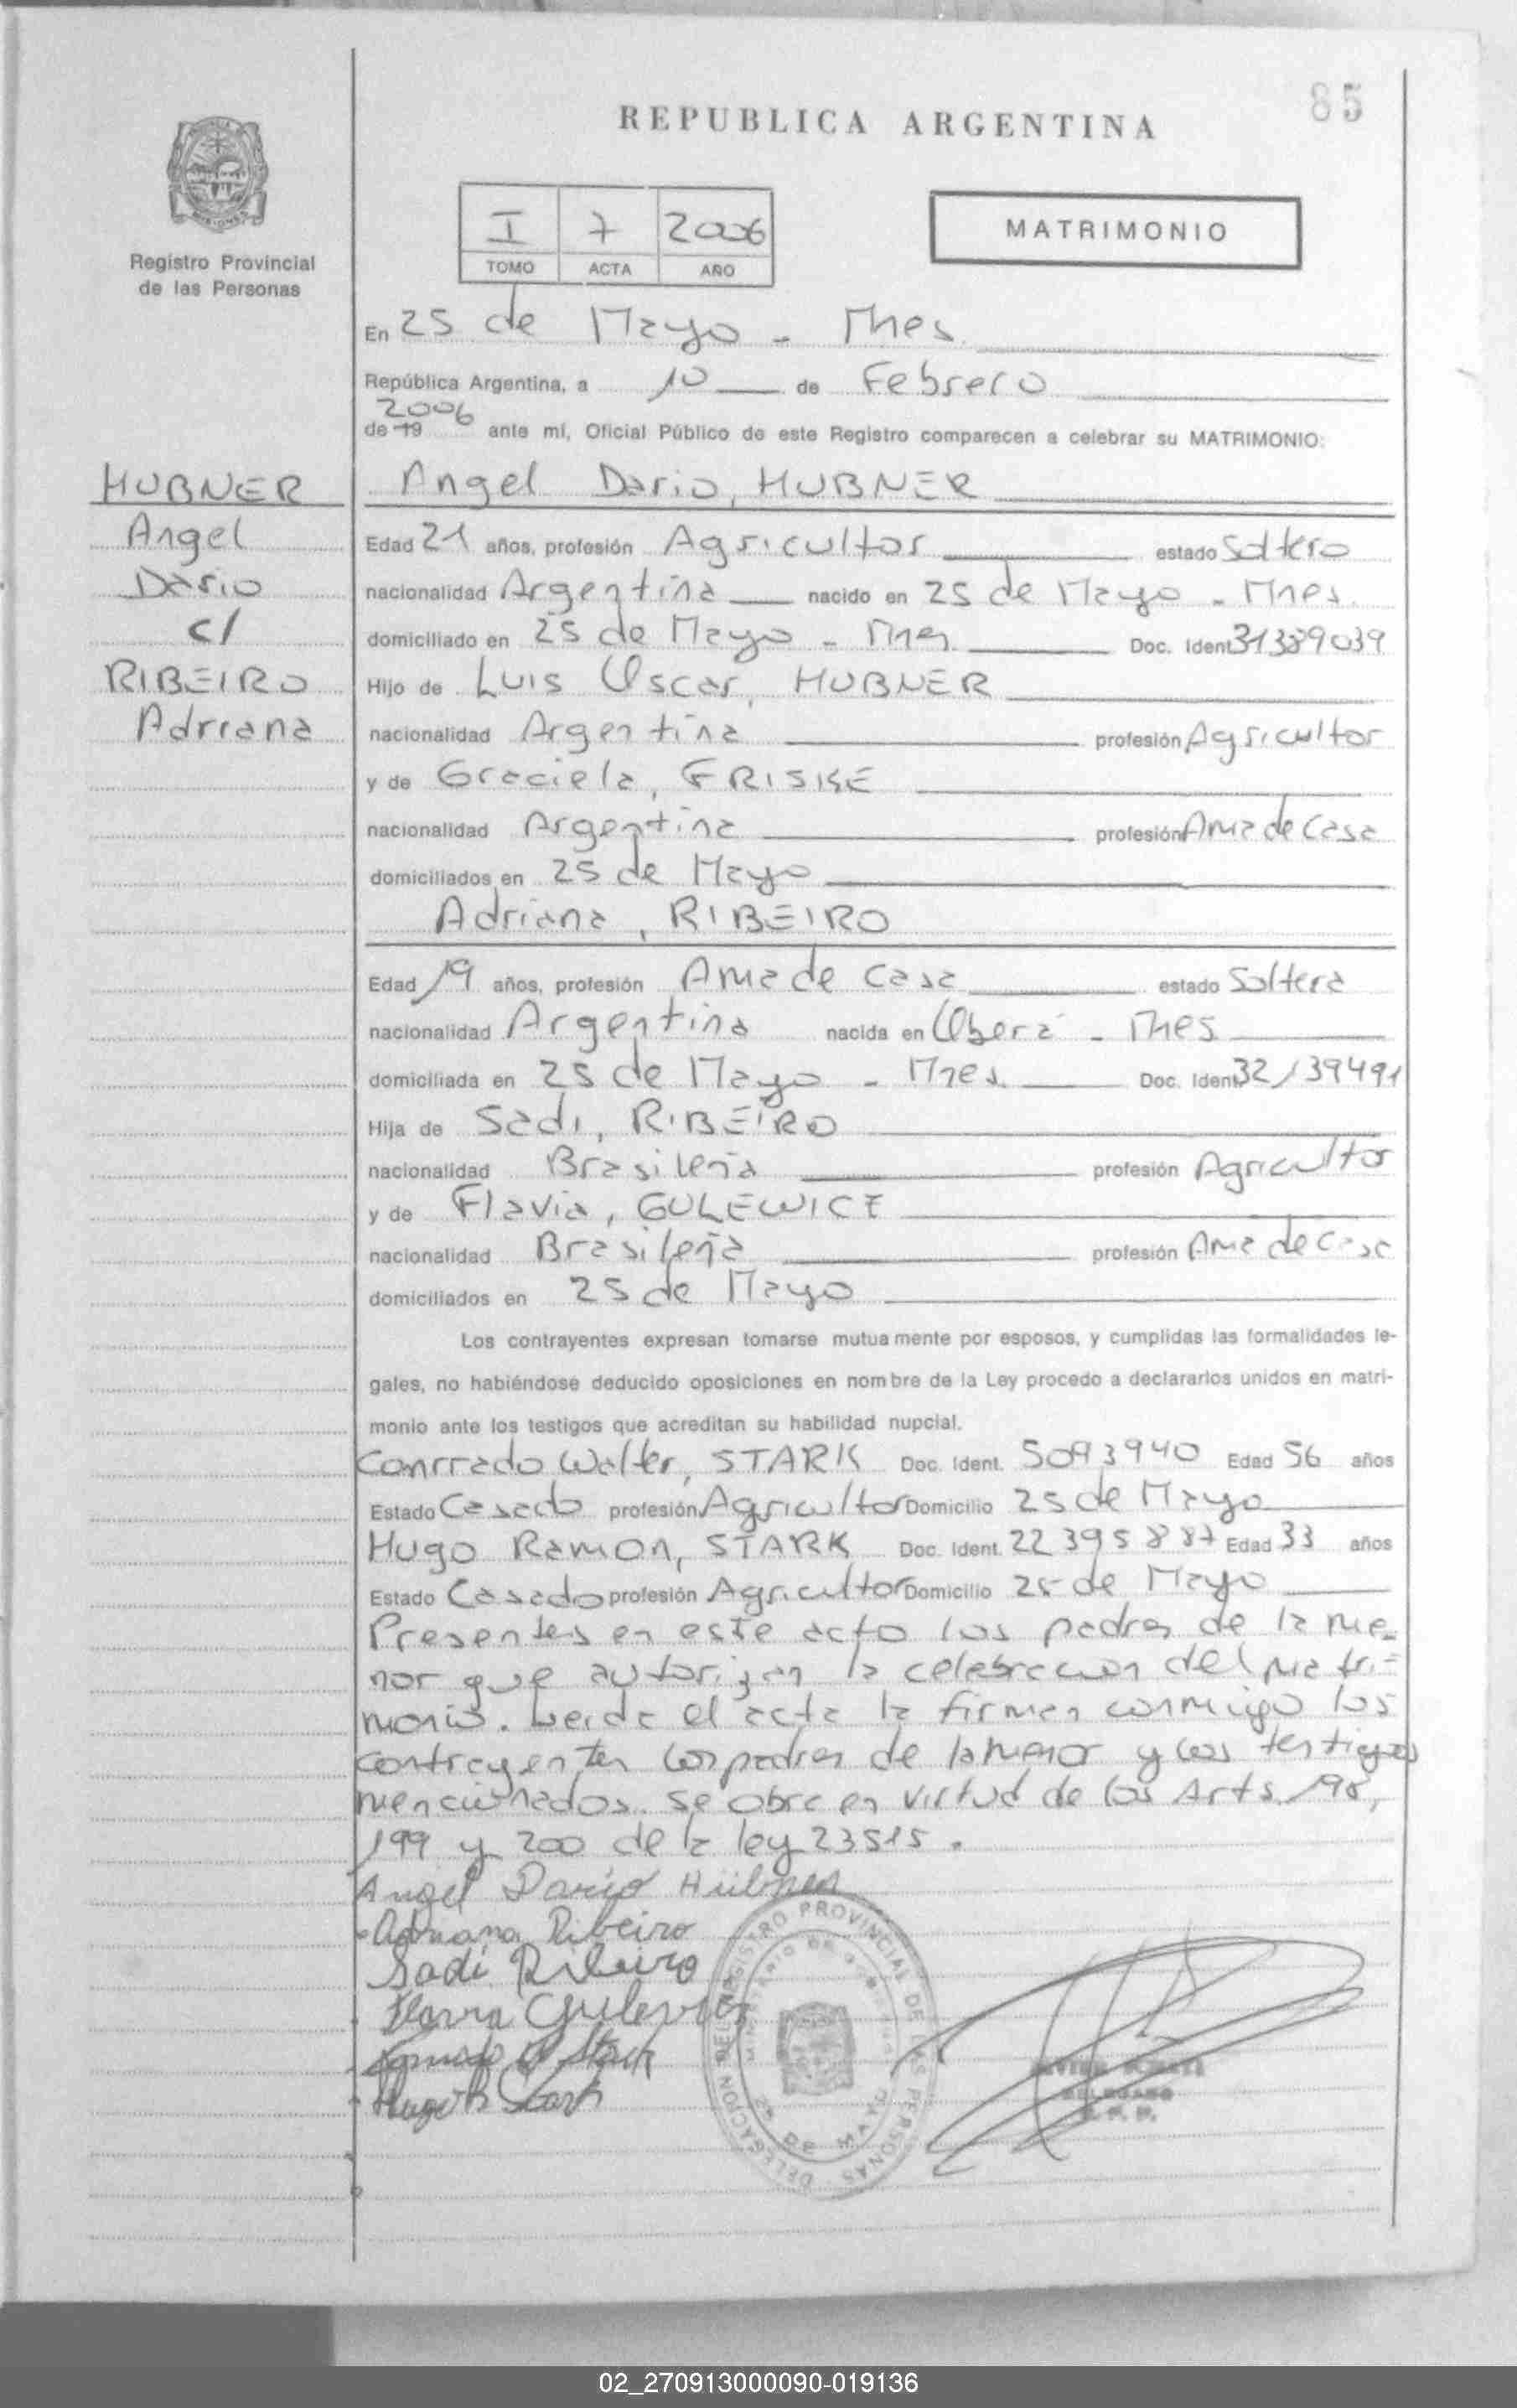 85
REPUBLICA ARGENTINA
Registro Provincial
de las Personas
I 7 2006
TOMO ACTA AÑO
MATRIMONIO
En 25 de Mayo - Mnes.
República Argentina, a 10 de Febrero
2006
de 19 ante mí, Oficial Público de este Registro comparecen a celebrar su MATRIMONIO:
HUBNER
Angel
Dario
c/
RIBEIRO
Adriana
Angel Dario, HUBNER
Edad 21 años, profesión Agricultor estado Soltero
nacionalidad Argentina nacido en 25 de Mayo - Mnes.
domiciliado en 25 de Mayo - Mnes. Doc. Ident 31389039
Hijo de Luis Oscar, HUBNER
nacionalidad Argentina profesión Agricultor
y de Graciela, FRISKE
nacionalidad Argentina profesión Ama de Casa
domiciliados en 25 de Mayo
Adriana, RIBEIRO
Edad 19 años, profesión Ama de Casa estado Soltera
nacionalidad Argentina nacida en Oberá - Mnes
domiciliada en 25 de Mayo - Mnes. Doc. Ident 32139491
Hija de Sadi, RIBEIRO
nacionalidad Brasileña profesión Agricultor
y de Flavia, GULEWICZ
nacionalidad Brasileña profesión Ama de Casa
domiciliados en 25 de Mayo
Los contrayentes expresan tomarse mutuamente por esposos, y cumplidas las formalidades le-
gales, no habiéndose deducido oposiciones en nombre de la Ley procedo a declararlos unidos en matri-
monio ante los testigos que acreditan su habilidad nupcial.
Conrrado Walter, STARK Doc. Ident. 5093940 Edad 56 años
Estado Casado profesión Agricultor Domicilio 25 de Mayo
Hugo Ramon, STARK Doc. Ident. 22395887 Edad 33 años
Estado Casado profesión Agricultor Domicilio 25 de Mayo
Presentes en este acto los padres de la me-
nor que autorizan la celebracion del matri-
monio. Leida el acta la firman conmigo los
contrayentes los padres de la menor y los testigos
mencionados. Se obra en virtud de los Arts. 198,
199 y 200 de la ley 23515.
Angel Dario Hübner
Adriana Ribeiro
Sadi Ribeiro
Flavia
Stark
Hugo R Stark
DELEGACION DEL REGISTRO PROVINCIAL DE LAS PERSONAS
MINISTERIO DE GOBIERNO
25 DE MAYO
DELEGADO
02_270913000090-019136